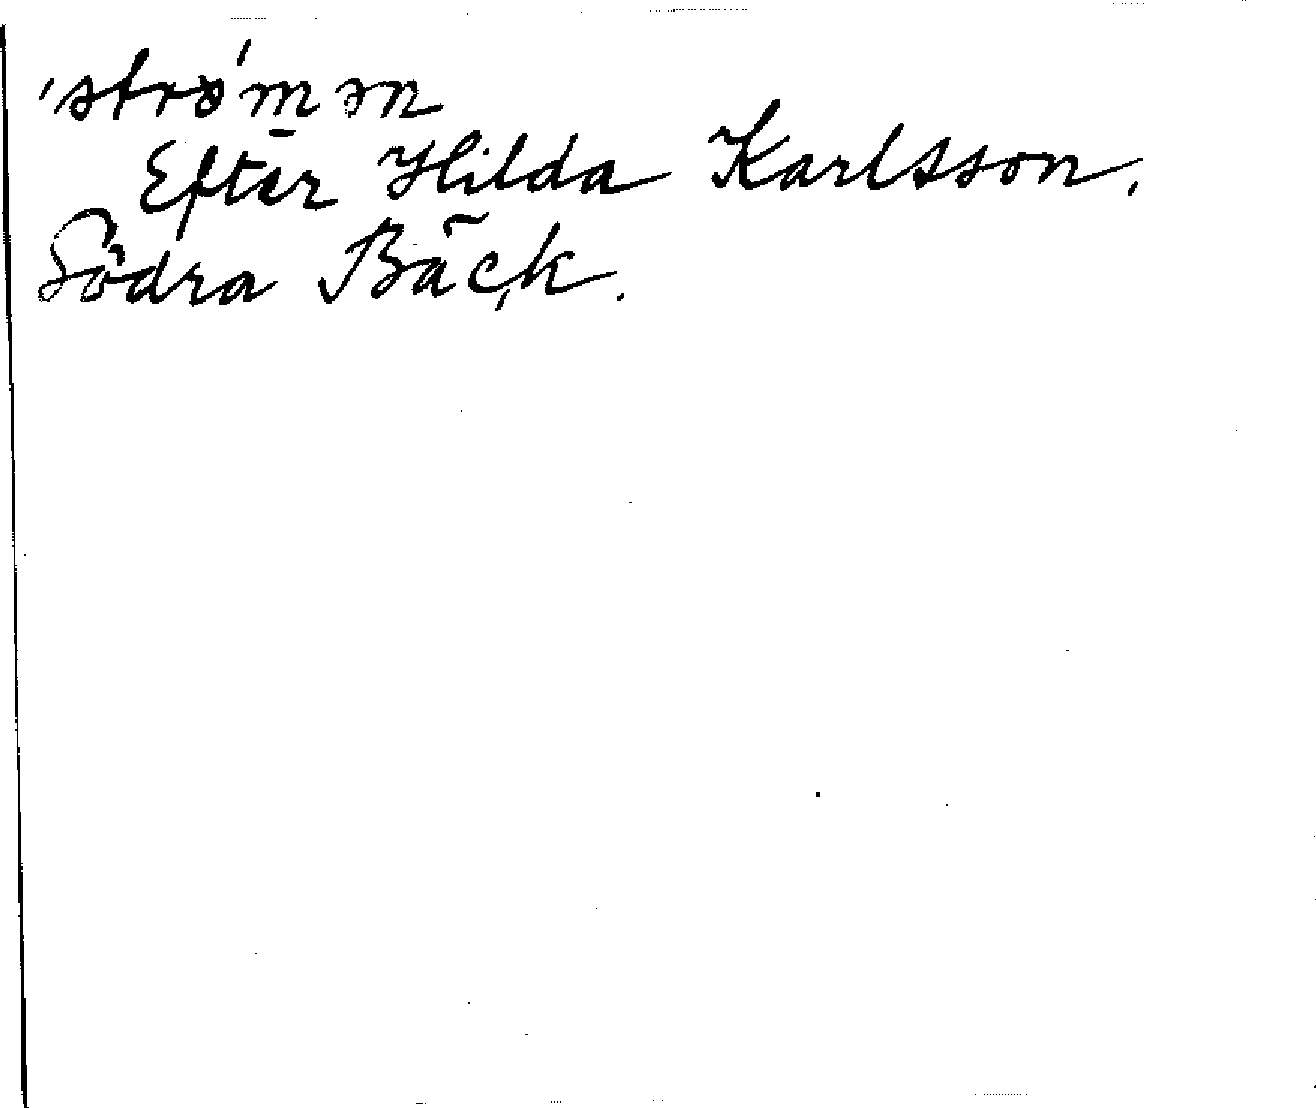 'strö'mən
Efter Hilda Karlsson,
Södra Bäck.